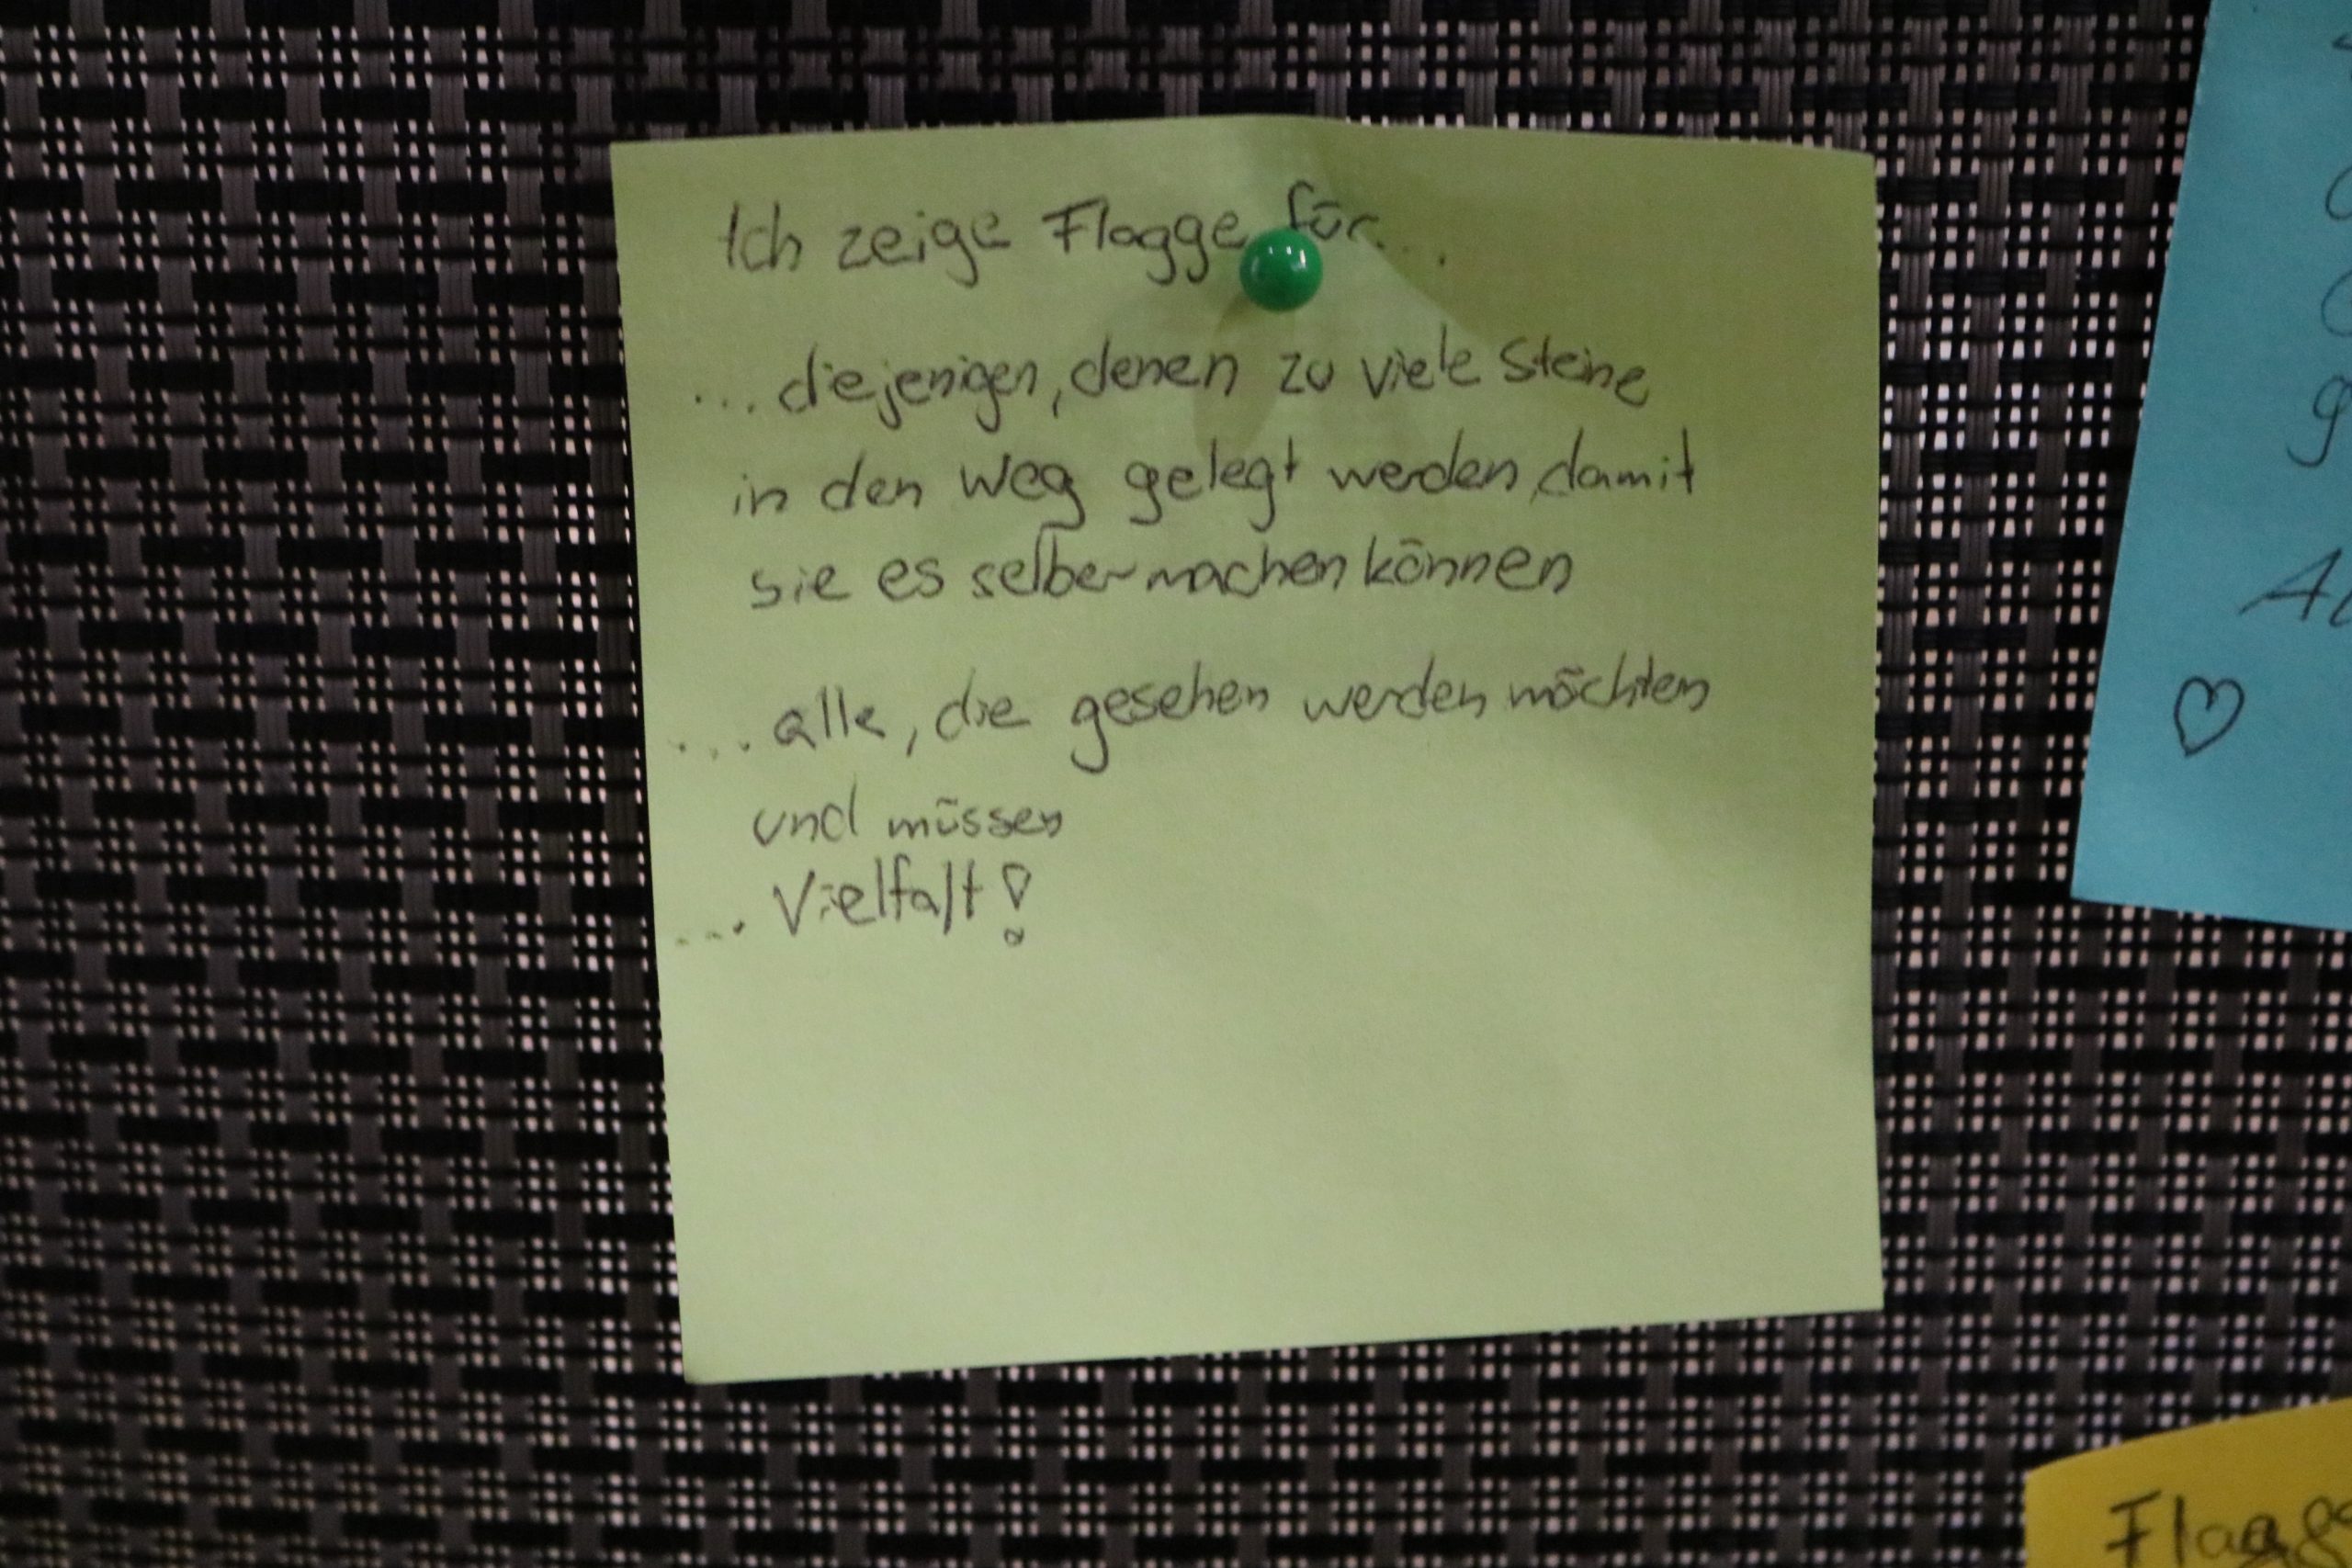 Ich zeige Flagge für...
...diejenigen, denen zu viele Steine
in den Weg gelegt werden, damit
sie es selber machen können
...alle, die gesehen werden möchten
und müssen
...Vielfalt!